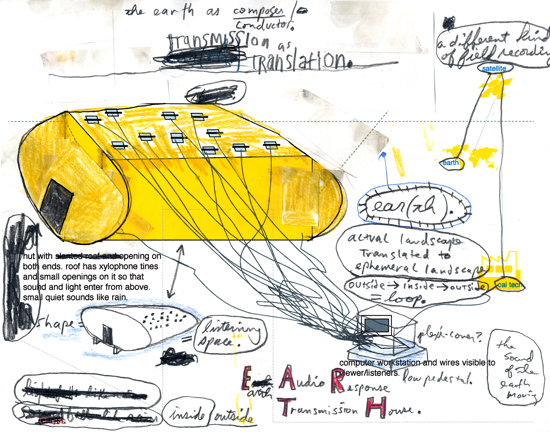 the earth as composer/
conductor.
transmission as
translation.
a different kind
of field recording
satellite
earth
ear(th).
actual landscape
translated to
ephemeral landscape
outside → inside → outside
= loop.
cal tech
hut with slanted roof and opening on
both ends. roof has xylophone tines
and small openings on it so that
sound and light enter from above.
small quiet sounds like rain.
shape =
= listening
space
plexi-cover?
computer workstation and wires visible to
viewer/listeners.
low pedestal.
the
sound
of the
earth
moving
Earth Audio Response
Transmission House.
inside/outside